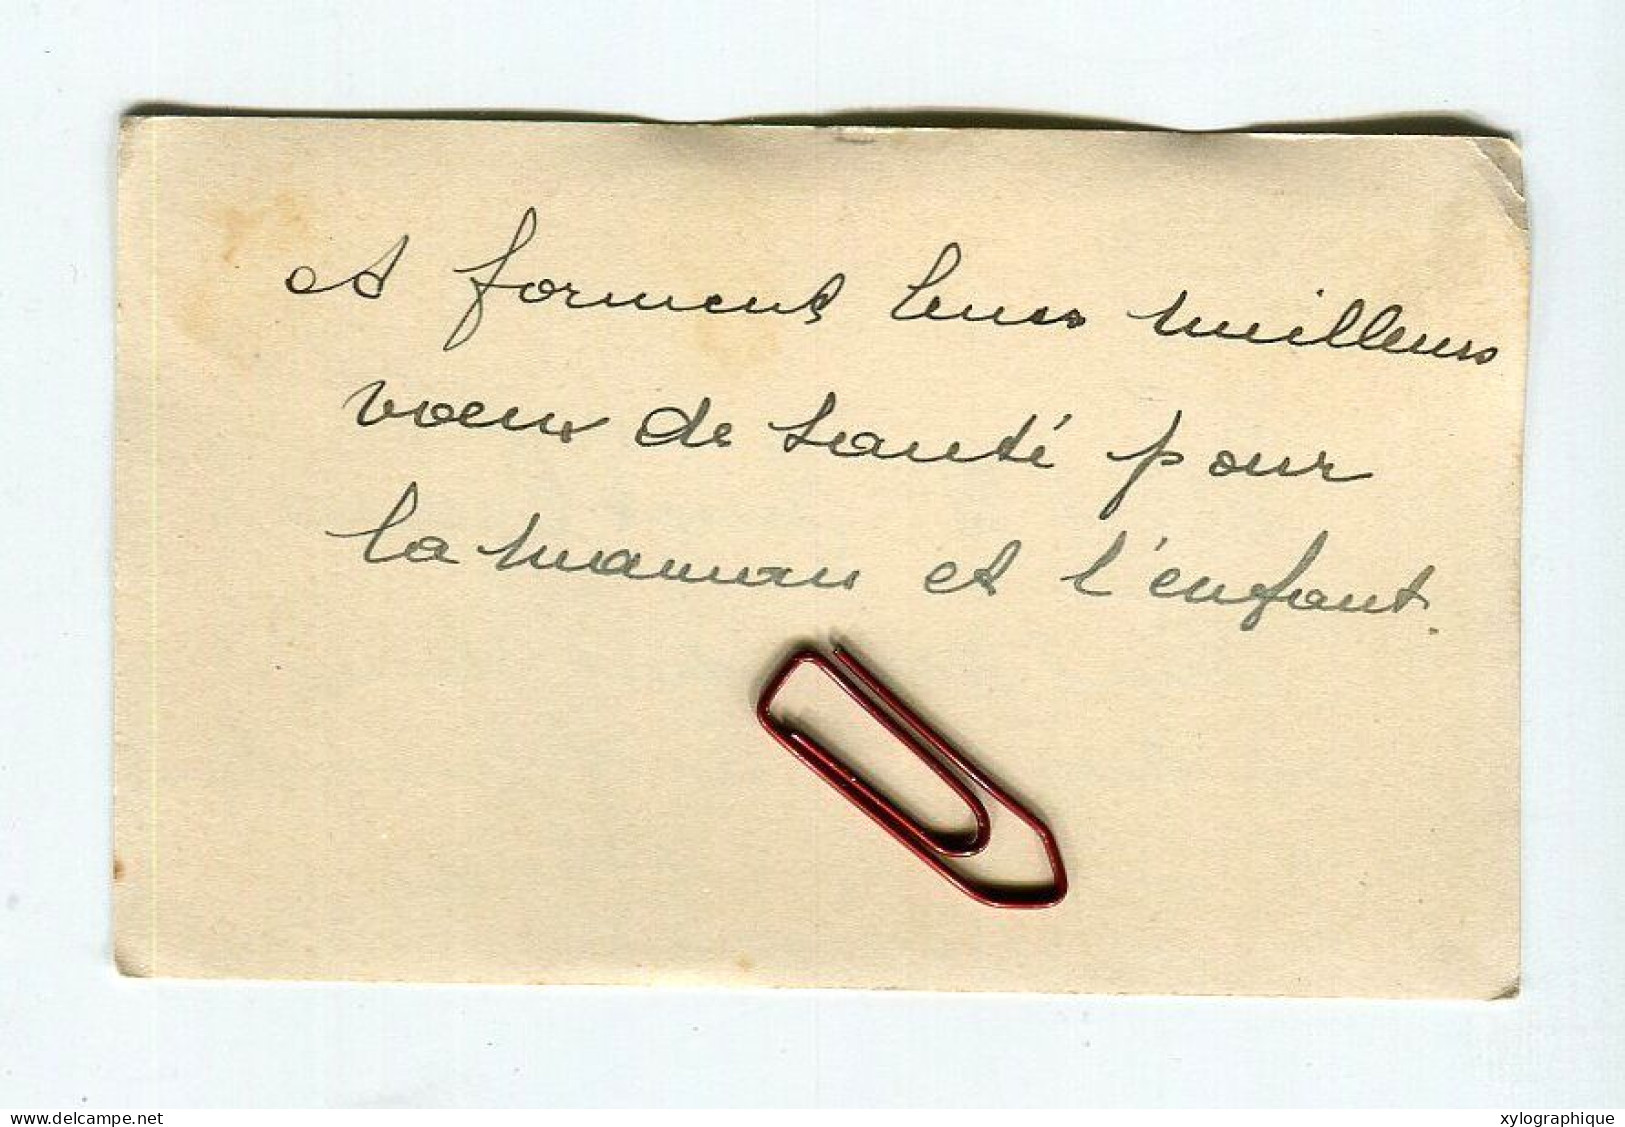 et forment leurs meilleurs
vœux de santé pour
la maman et l'enfant.
delcampe.net
xylographique